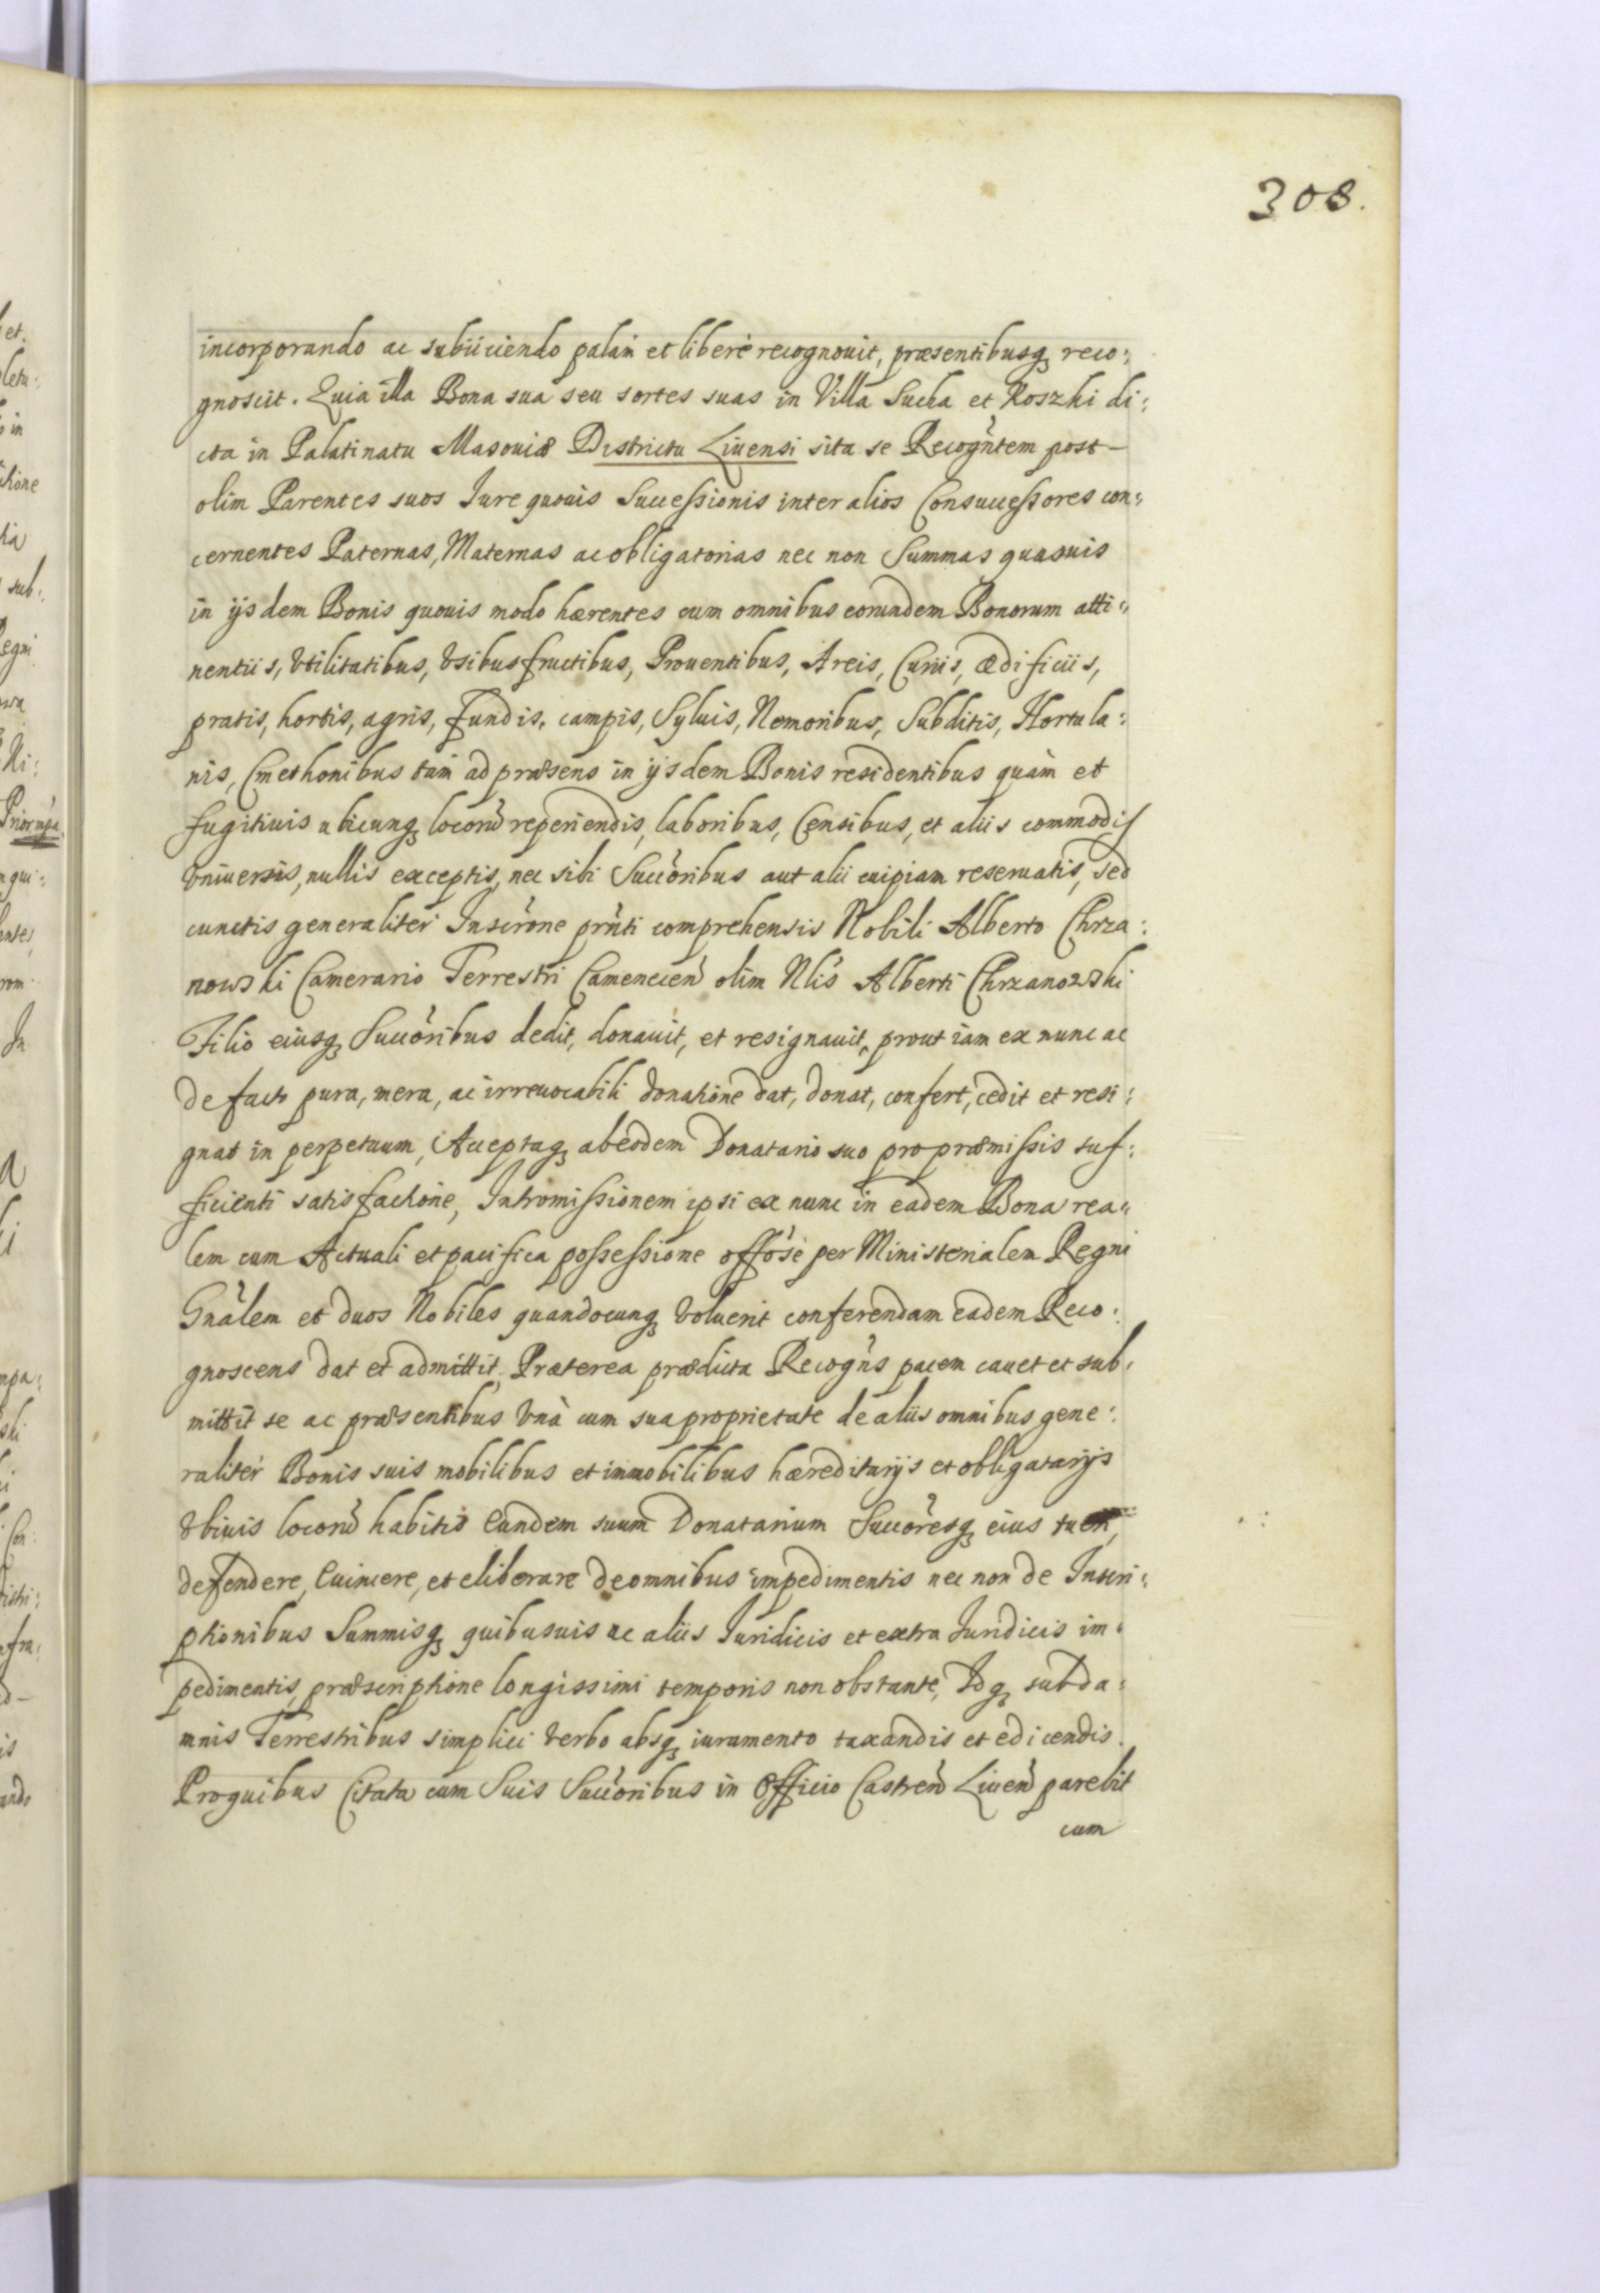 308.
incorporando ac subiiciendo palàm et liberè recognouit, præsentibusq̃ reco:
gnoscit. Quia illa Bona sua seu sortes suas in Villa Sucha et Roszki di:
cta in Palatinatu Masouiæ Districtu Liuensi sita se Recogñtem post
olim Parentes suos Jure quouis Successionis inter alios Consuccessores con:
cernentes Paternas, Maternas ac obligatorias nec non Summas quasuis
in ijsdem Bonis quouis modo hærentes cum omnibus eorundem Bonorum atti:
nentiis, vtilitatibus, vsibusfructibus, Prouentibus, Areis, Curiis, ædificiis,
pratis, hortis, agris, Fundis, campis, Syluis, Nemoribus, Subditis, Hortula:
nis, Cmethonibus tàm ad præsens in ijsdem Bonis residentibus quàm et
fugitiuis ubicunq̃ locorũ reperiendis, laboribus, Censibus, et aliis commodis
vniuersis, nullis exceptis, nec sibi Succoribus aut alii cuipiam reseruatis, sed
cunctis generaliter Inscrone prñti comprehensis Nobili Alberto Chrza:
nowski Camerario Terrestri Camenecen̄ olim Nlis Alberti Chrzanowski
Filio eiusq̃ Succoribus dedit, donauit, et resignauit, prout iam ex nunc ac
de facto pura, mera, ac irreuocabili donatione dat, donat, confert, cedit et resi:
gnat in perpetuum, Acceptaq̃ ab eodem Donatario suo pro præmissis suf:
ficienti satisfactione, Intromissionem ipsi ex nunc in eadem Bona rea:
lem cum Actuali et pacifica possessione offose per Ministerialem Regni
Gnālem et duos Nobiles quandocunq̃ voluerit conferendam eadem Reco:
gnoscens dat et admittit, Præterea prædicta Recogñs pacem cauet et sub:
mittit se ac præsentibus vnà cum sua proprietate de aliis omnibus gene:
raliter Bonis suis mobilibus et immobilibus hæreditarijs et obligatarijs
vbiuis locorũ habitis Eundem suum Donatarium Succoresq̃ eius tueri,
defendere, Euincere, et eliberare de omnibus impedimentis nec non de Inscri:
ptionibus Summisq̃ quibusuis ac aliis Juridicis et extra Juridicis im:
pedimentis, præscriptione longissimi temporis non obstante, Idq̃ sub da:
mnis Terrestribus simplici verbo absq̃ iuramento taxandis et edicendis.
Pro quibus Citata cum Suis Succoribus in Officio Castren̄ Liuen̄ parebit
cum